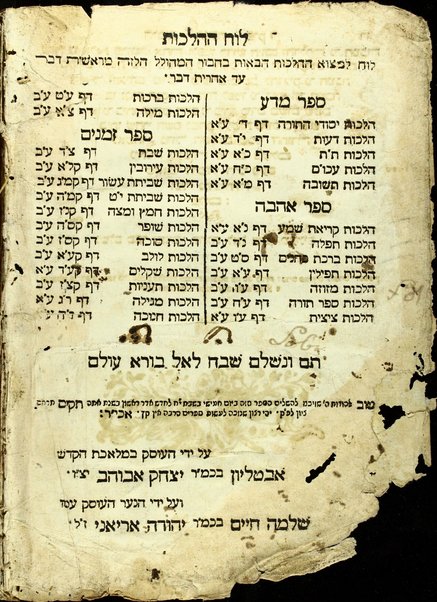 לוח ההלכות
לוח למצוא ההלכות הבאות בחבור המהולל הלזה מראשית דבר
עד אחרית דבר׳
ספר מדע
הלכות יסודי התורה דף ד׳ ע״א
הלכות דעות דף י״ד ע״א
הלכות ת״ת דף כ״א ע״א
הלכות עכו״ם דף כ״ח ע״א
הלכות תשובה דף מ״א ע״א
ספר אהבה
הלכות קריאת שמע דף נ״א ע״א
הלכות תפלה דף נ״ד ע״ב
הלכות ברכת כהנים דף ס״ט ע״ב
הלכות תפילין דף ע״א ע״ב
הלכות מזוזה דף ע״ו ע״ב
הלכות ספר תורה דף ע״ח ע״ב
הלכות ציצית דף ע״ז ע״ב
הלכות ברכות דף ע״ט ע״ב
הלכות מילה דף צ״א ע״ב
ספר זמנים
הלכות שבת דף צ״ד ע״ב
הלכות עירובין דף קל״א ע״ב
הלכות שביתת עשור דף קמ״ג ע״ב
הלכות שביתת י״ט דף קמ״ה ע״ב
הלכות חמץ ומצה דף קנ״ז ע״ב
הלכות שופר דף קס״ה ע״ב
הלכות סוכה דף קס״ז ע״ב
הלכות לולב דף קע״א ע״ב
הלכות שקלים דף קע״ד ע״א
הלכות תעניות דף קצ״ז ע״ב
הלכות מגילה דף ר״ג ע״א
הלכות חנוכה דף ר״ה ע״ב
תם ונשלם שבח לאל בורא עולם
טוב להודות ה׳ שזיכנו להשלים הספר הזה ביום חמישי בשבת י״ח לחדש אדר ראשון בשנת אתה תקום תרחם
ציון לפ״ק׳ יהי רצון שנזכה לעשות ספרים הרבה אין קץ׳ אכי״ר:
על ידי העוסק במלאכת הקדש
אבטליון בכמ״ר יצחק אבוהב יצ״ו׳
ועל ידי הנער העוסק עמו
שלמה חיים בכמ״ר יהודה אריאני ז״ל׳